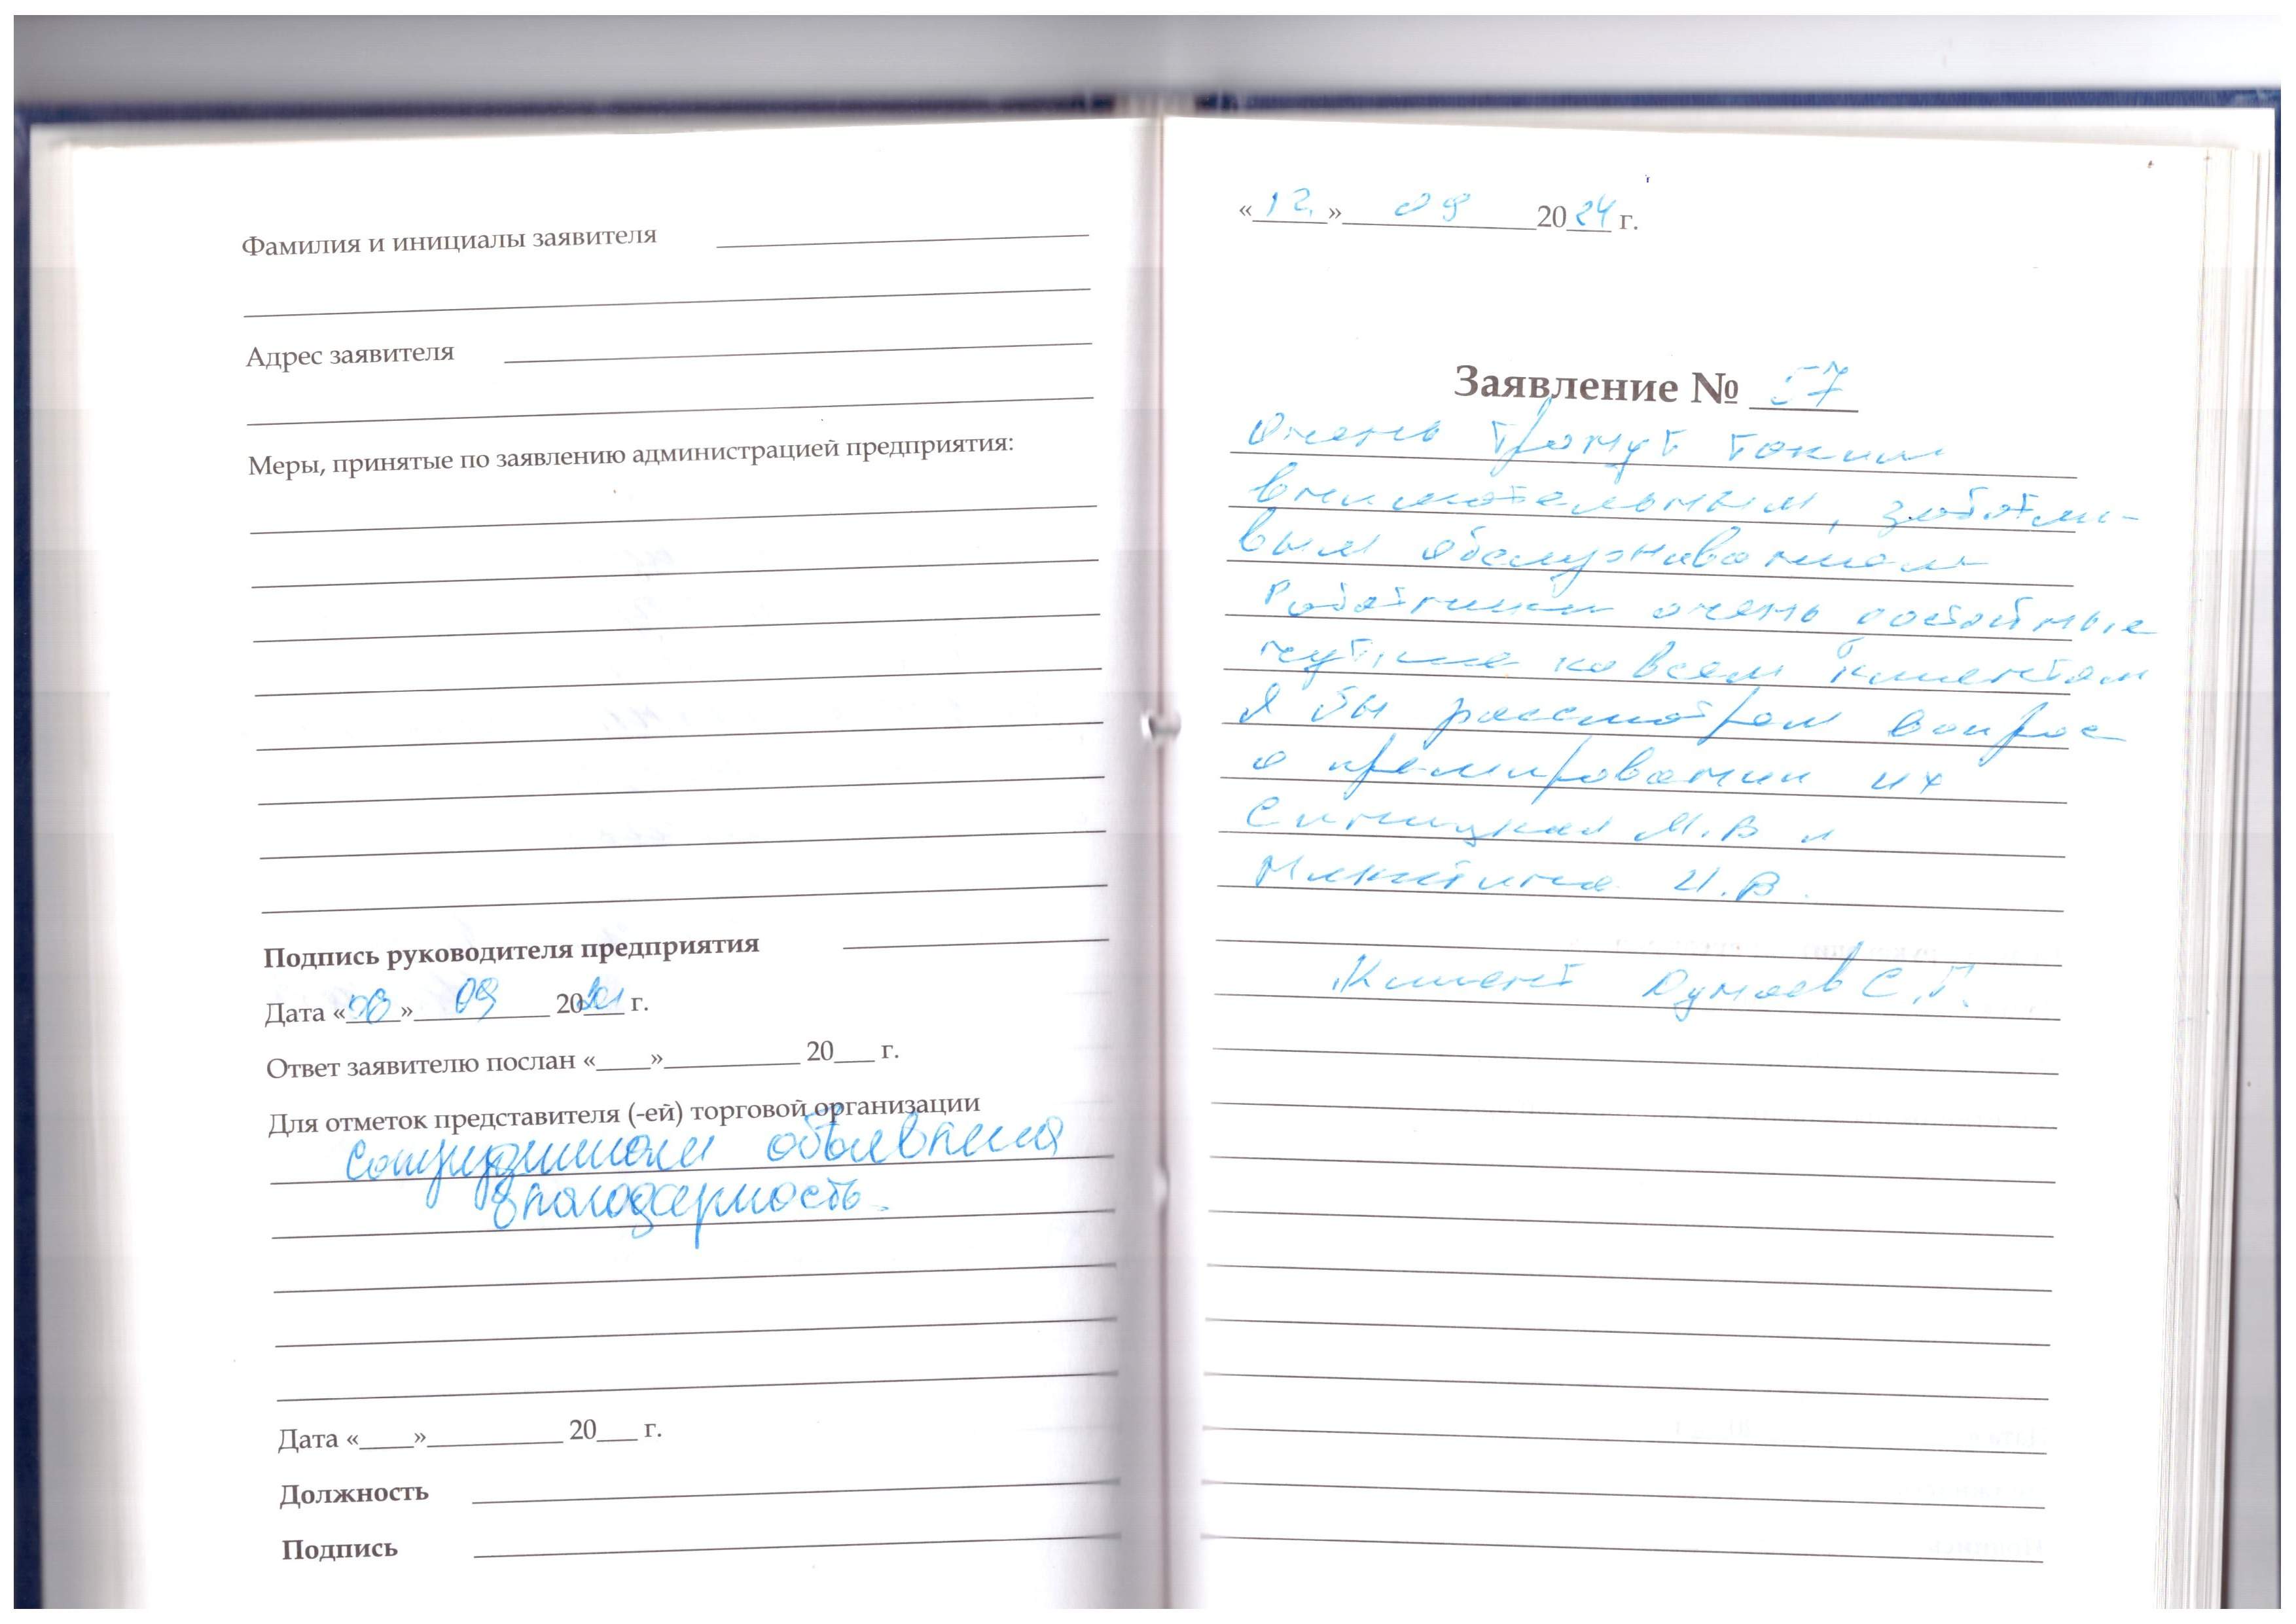 Фамилия и инициалы заявителя
Адрес заявителя
Меры, принятые по заявлению администрацией предприятия:
Подпись руководителя предприятия
Дата «» 09 20 г.
Ответ заявителю послан «____»__________ 20___ г.
Для отметок представителя (-ей) торговой организации
Сотрудникам объявлена
благодарность.
Дата «____»__________ 20___ г.
Должность
Подпись
«12.» 09 2024 г.
Заявление № 57
Очень тронут таким
внимательным, заботли-
вым обслуживанием
Работники очень достойные
чуткие ко всем клиентам
Я бы рассмотрел вопрос
о премировании их
Синицкая М.В и
Никитина И.В.
Клиент С.Г.